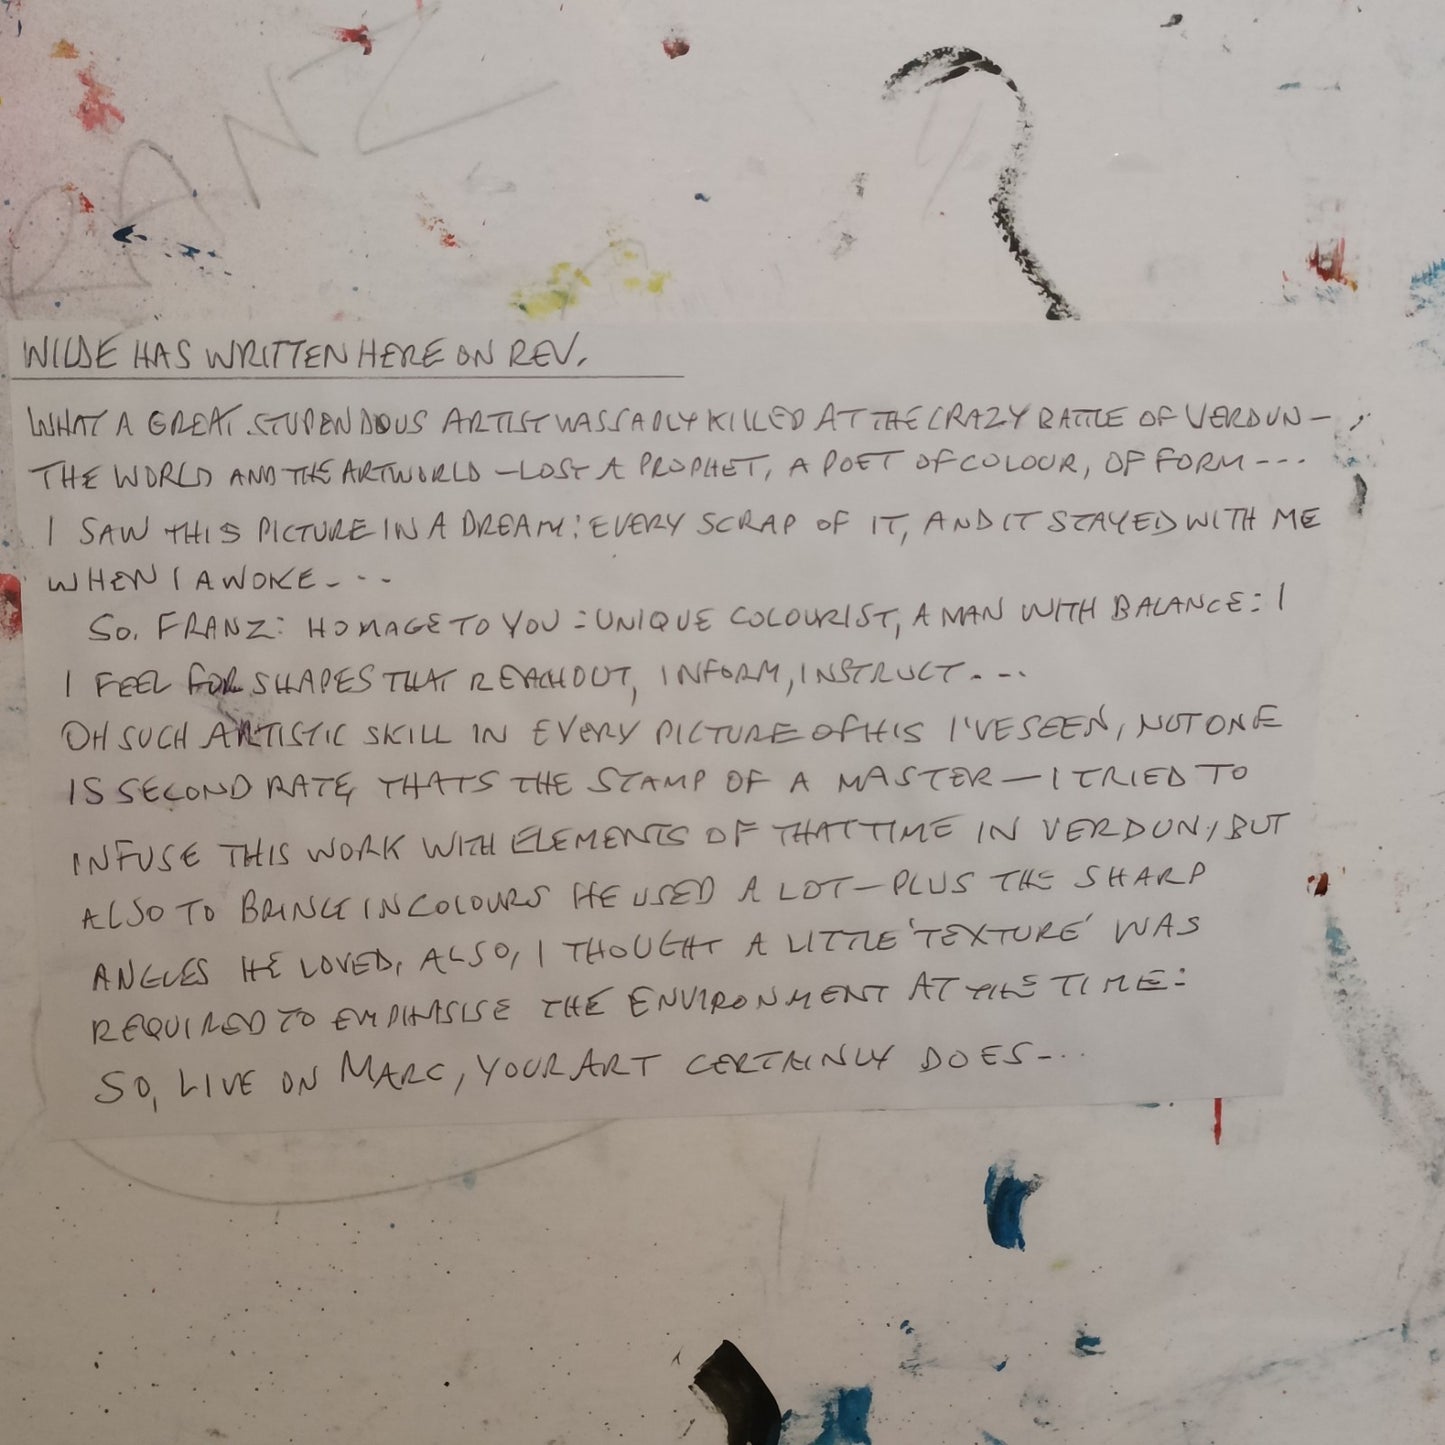 RANZ
WILDE HAS WRITTEN HERE ON REV.
WHAT A GREAT. STUPENDOUS ARTIST WAS SADLY KILLED AT THE CRAZY BATTLE OF VERDUN - ;
THE WORLD AND THE ARTWORLD - LOST A PROPHET, A POET OF COLOUR, OF FORM ---
I SAW THIS PICTURE IN A DREAM: EVERY SCRAP OF IT, AND IT STAYED WITH ME
WHEN I AWOKE - - -
SO. FRANZ: HOMAGE TO YOU = UNIQUE COLOURIST, A MAN WITH BALANCE: I
I FEEL FOR SHAPES THAT REACH OUT, INFORM, INSTRUCT. - -
OH SUCH ARTISTIC SKILL IN EVERY PICTURE OF HIS I'VE SEEN, NOT ONE
IS SECOND RATE, THATS THE STAMP OF A MASTER — I TRIED TO
INFUSE THIS WORK WITH ELEMENTS OF THAT TIME IN VERDUN, BUT
ALSO TO BRING IN COLOURS HE USED A LOT - PLUS THE SHARP
ANGLES HE LOVED. ALSO, I THOUGHT A LITTLE 'TEXTURE' WAS
REQUIRED TO EMPHASISE THE ENVIRONMENT AT THE TIME:
SO, LIVE ON MARC, YOUR ART CERTAINLY DOES - . . .